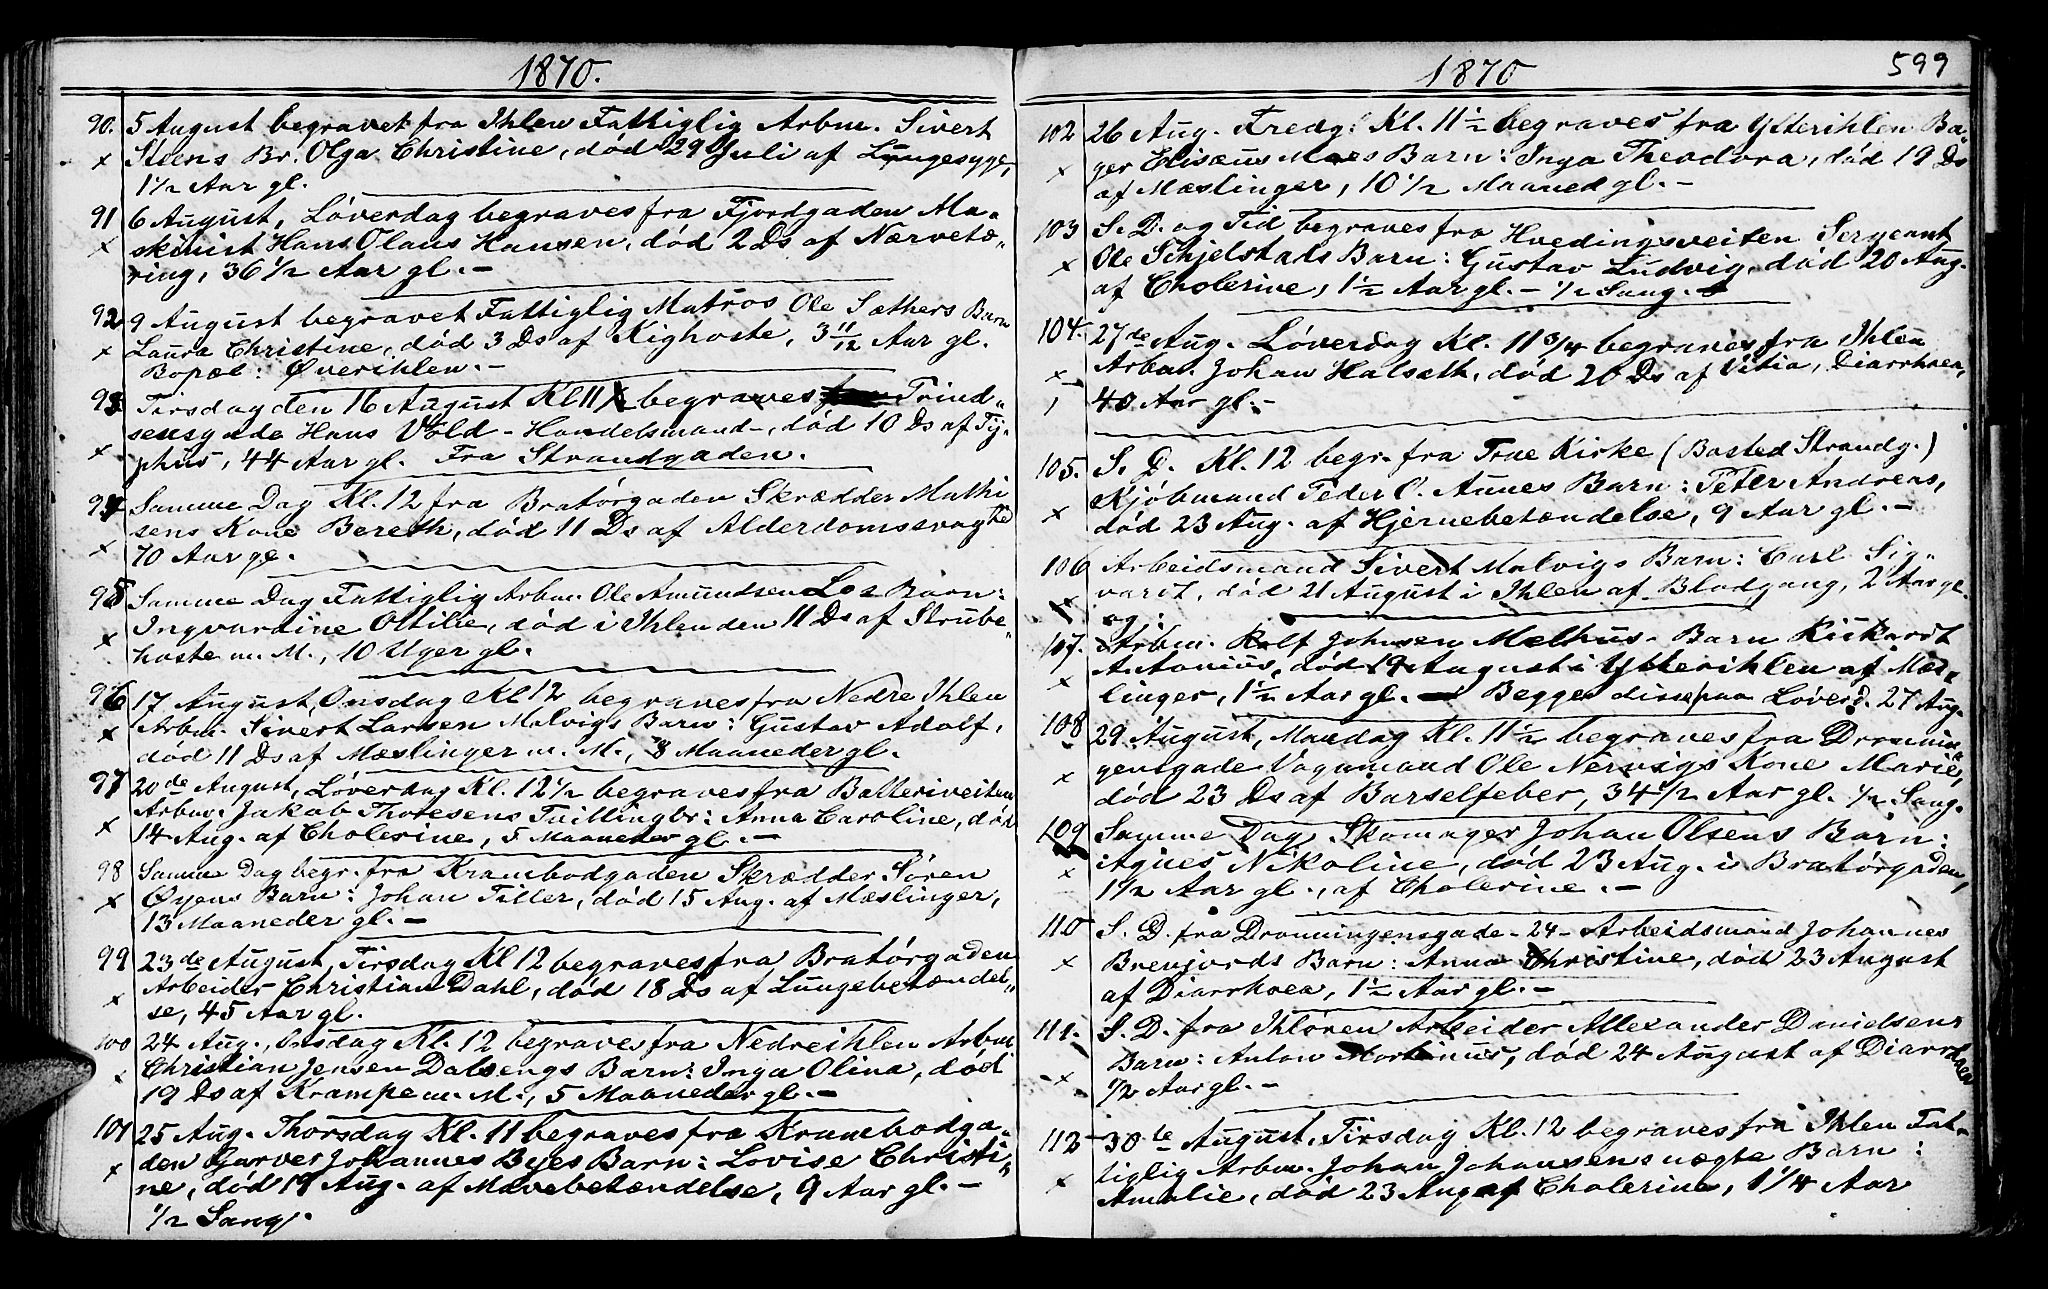 1870.
90. 5 August begravet fra Ihlen Fattiglig Arbm. Sivert
x Steens Br. Olga Christine, død 29 Juli af Lungesyge,
1 1/2 Aar gl.
91 6 August, Løverdag begraves fra Fjordgaden Ma-
x skinist Hans Olaus Hansen, død 2 Ds af Nærvetæ-
ring, 36 1/2 Aar gl. -
92 9 August begravet Fattiglig Matros Ole Sæthers Barn
x Laura Christine, død 3 Ds af Kighoste, 3 11/12 Aar gl.
Bopæl: Øverihlen. -
93 Tirsdag den 16 August Kl 11 begraves Trind-
sensgade Hans Vold - Handelsmand -, død 10 Ds af Ty-
x phus, 44 Aar gl. Fra Strandgaden.
94 Samme Dag Kl. 12 fra Bratørgaden Skrædder Mathi
sens Kone Bereth, død 11 Ds af Alderdomssvaghed
x 70 Aar gl.
95 Samme Dag Fattiglig Arbm. Ole Amundsen Los Barn:
x Ingvardine Ottilie, død i Ihlen den 11 Ds af Strube-
hoste m. M., 10 Uger gl.
96 17 August, Onsdag Kl 12 begraves fra Nedre Ihlen
x Arbm. Sivert Larsen Malvigs Barn: Gustav Adolf,
død 11 Ds af Mæslinger m. M., 8 Maaneder gl.
97 20de August, Løverdag Kl. 12 1/2 begraves fra Batteriveiten
x Arbm. Jakob Thoresens Tvillingbr: Anna Caroline, død
14 Aug. af Cholerine, 5 Maaneder gl. -
98 Samme Dag begr. fra Krambodgaden Skrædder Søren
x Øyens Barn: Johan Tiller, død 15 Aug. af Mæslinger,
13 Maaneder gl. -
99 23de August, Tirsdag Kl 12 begraves fra Bratørgaden
x Arbeider Christian Dahl, død 18 Ds af Lungebetændel-
se, 45 Aar gl.
100 24 Aug., Onsdag Kl. 12 begraves fra Nedreihlen Arbm
x Christian Jensen Dalsengs Barn: Inga Olina, død
19 Ds af Krampe m. M., 5 Maaneder gl. -
101 25 Aug. Thorsdag Kl. 11 begraves fra Krambodga-
x den Garver Johannes Byes Barn: Lovise Christi-
ne, død 19 Aug. af Mavebetændelse, 9 Aar gl. -
1/2 Sang.
1870
599
102 26 Aug. Fredg. Kl. 11 1/2 begraves fra Ytterihlen Ba-
x ger Elisæus Moes Barn: Inga Theodora, død 19 Ds
af Mæslinger, 10 1/2 Maaned gl. -
103 S. D. og Tid begraves fra Hvedingsveiten Sergeant
x Ole Schjelstads Barn: Gustav Ludvig, død 20 Aug.
af Cholerine, 1 1/2 Aar gl. - 1/2 Sang.
104. 27de Aug. Løverdag Kl. 11 3/4 begraves fra Ihlen
x Arbm. Johan Halsæth, død 20 Ds af Vitia, Diarrhoea,
1 40 Aar gl. -
105. S. D. Kl. 12 begr. fra Frue Kirke (Bosted Strandg.)
x Kjøbmand Peder O. Aunes Barn: Peter Andreas,
død 23 Aug. af Hjernebetændelse, 9 Aar gl. -
106 Arbeidsmand Sivert Malvigs Barn: Carl Sig-
x vart, død 21 August i Ihlen af Blodgang, 2 Aar gl.
og:
107. Arbm. Rolf Johnsen Melhus Barn Rickardt
x Antonius, død 19 August i Ytterihlen af Mæs-
linger, 1 1/2 Aar gl. Begge disse paa Løverd. 27 Aug.
108 29 August, Mandag Kl. 11 1/2 begraves fra Dronnin-
x gensgade Vognmand Ole Nervigs Kone Marie,
død 23 Ds af Barselfeber, 34 1/2 Aar gl. 1/2 Sang.
109 Samme Dag Skomager Johan Olsens Barn:
x Agnes Nikoline, død 23 Aug. i Bratørgaden,
1 1/2 Aar gl., af Cholerine. -
110 S. D. fra Dronningensgade - 24 - Arbeidsmand Johannes
x Brenjords Barn: Anna Christine, død 23 August
af Diarrhoea, 1 1/2 Aar gl. -
111. S. D. fra Ihløren Arbeider Allexander Danielsens
x Barn: Anton Martinus, død 24 August af Diarrhoea
1/2 Aar gl. -
112 30te August, Tirsdag Kl. 12 begraves fra Ihlen Fat-
x tiglig Arbm. Johan Johansens uægte Barn:
Amalie, død 23 Aug af Cholerine, 1 1/4 Aar